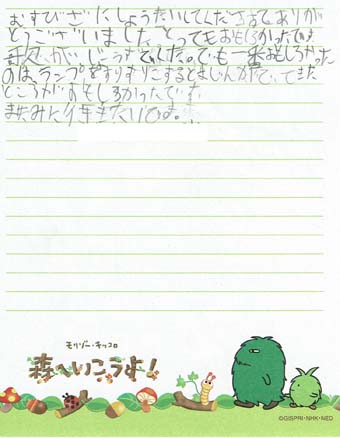 むすびざにしょうたいしてくださってありが
とうございました。とってもおもしろかったです
歌がじょうずでした。でも一番おもしろかった
のは、ランプをすりすりこするとまじんがでてきた
ところがおもしろかったです。
またみに行きたいです。
モリゾー・キッコロ
森へいこうよ!
©GISPRI・NHK・NED